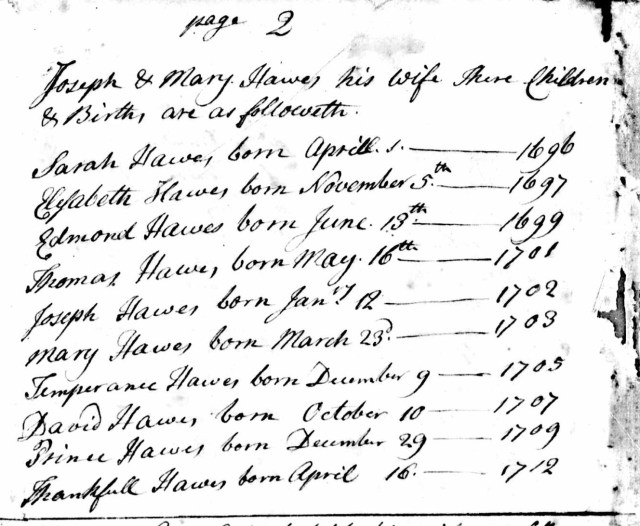 page 2
Joseph & Mary Hawes his wife there Children
& Births are as followeth.
Sarah Hawes born Aprill. 1. — 1696
Elisabeth Hawes born November 5.th — 1697
Edmond Hawes born June. 13.th — 1699
Thomas Hawes born May. 16th — 1701
Joseph Hawes born Janry 12 — 1702
Mary Hawes born March 23d. — 1703
Temperance Hawes born December 9 — 1705
David Hawes born October 10 — 1707
Prince Hawes born December 29 — 1709
Thankfull Hawes born April 16. — 1712